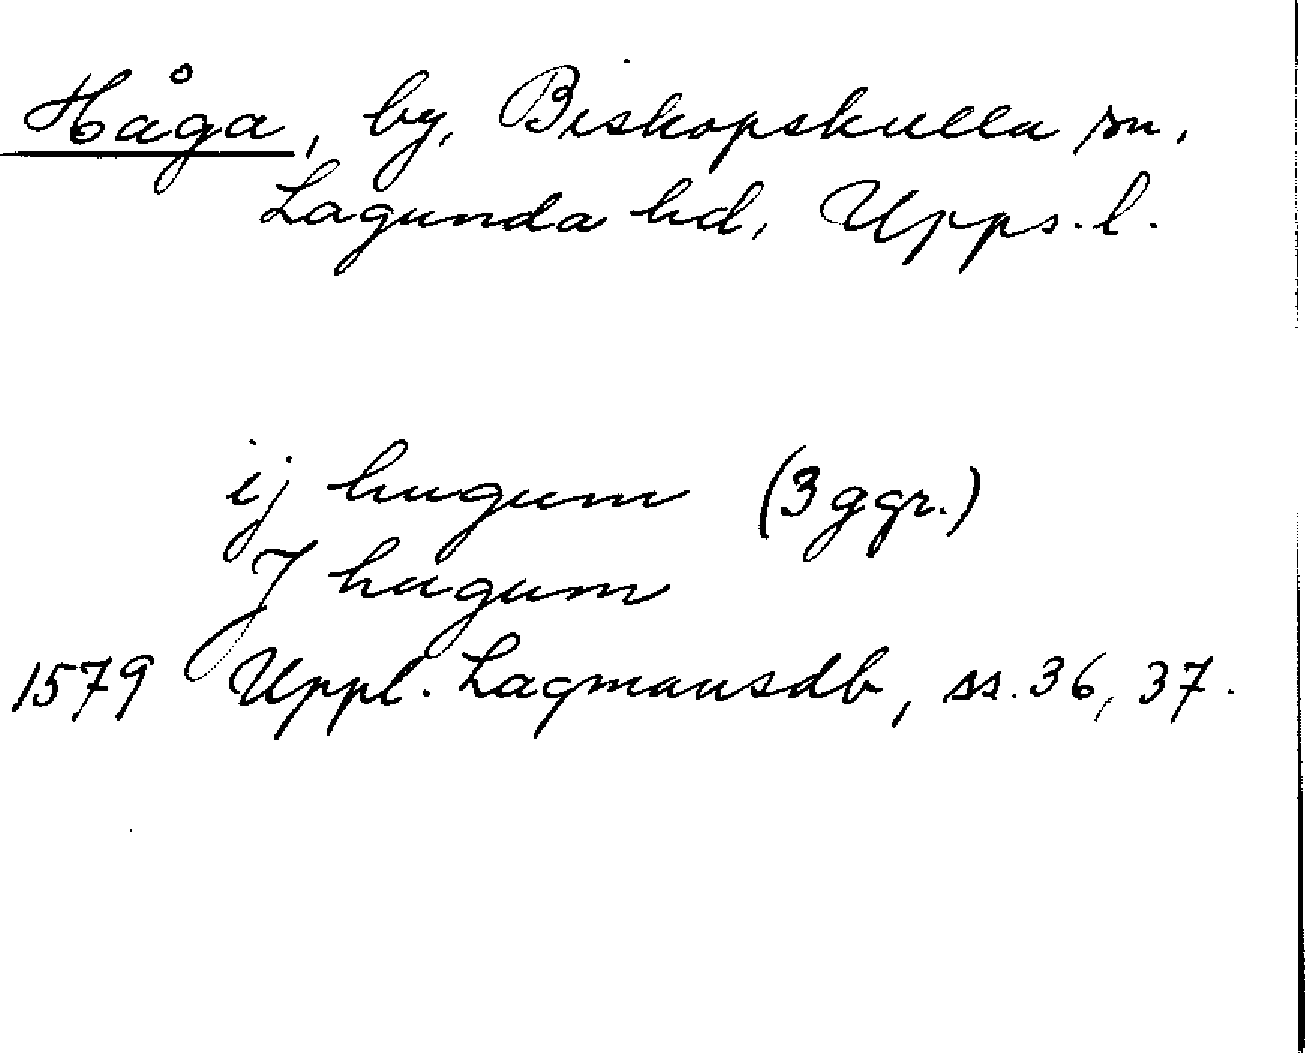 Håga, by, Biskopskulla sn,
Lagunda hd, Upps. l.
ij hugum (3 ggr.)
J hugum
1579 Uppl. Lagmansdb, ss. 36, 37.